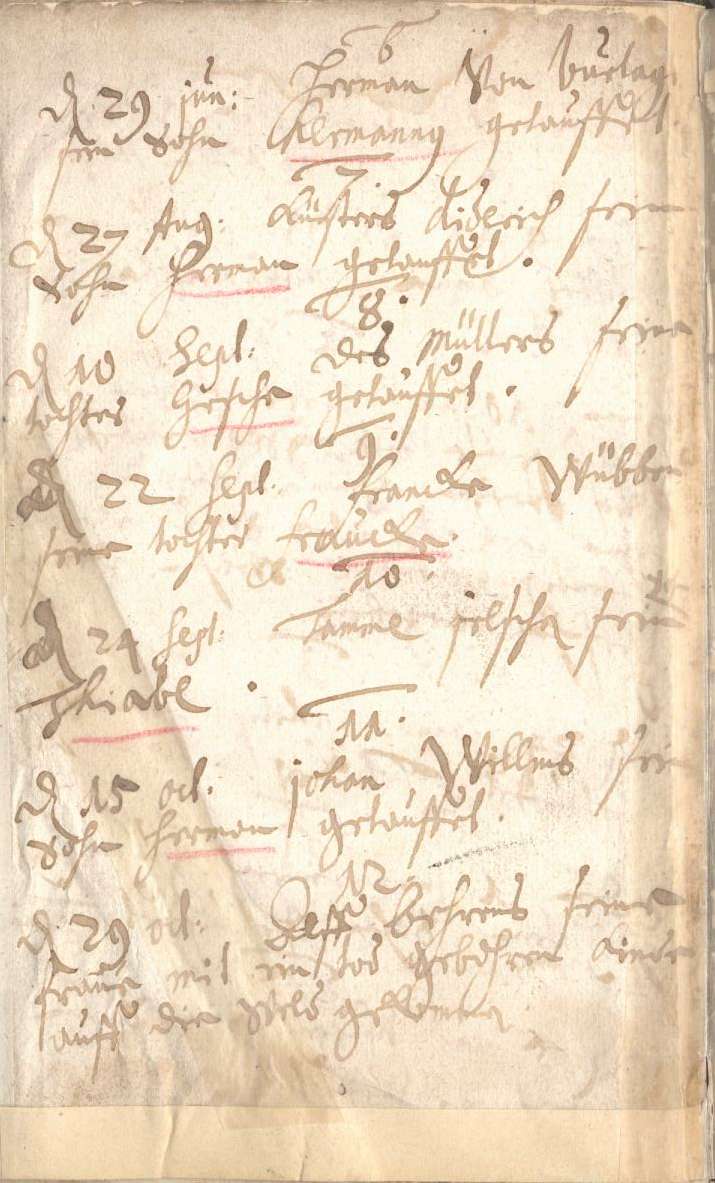 6
d 29 jun: Herman Von Burlag
sein Sohn Alemanny getauffet.
7
d 27 Aug: Küsters Didrich sein
Sohn Herman getauffet.
8.
d 10 Sept: des Müllers seine
tochter Gesche getauffet.
9.
d 22 Sept. Francke Wübben
seine tochter Fraucke.
10.
d 24 Sept: Tamme sein
11.
d 15 oct. johan Willms sein
Sohn Herman getauffet.
12.
d 29 oct: Behrens seine
fraue mit ein tod gebohren Kinde
auff die Welt gekommen